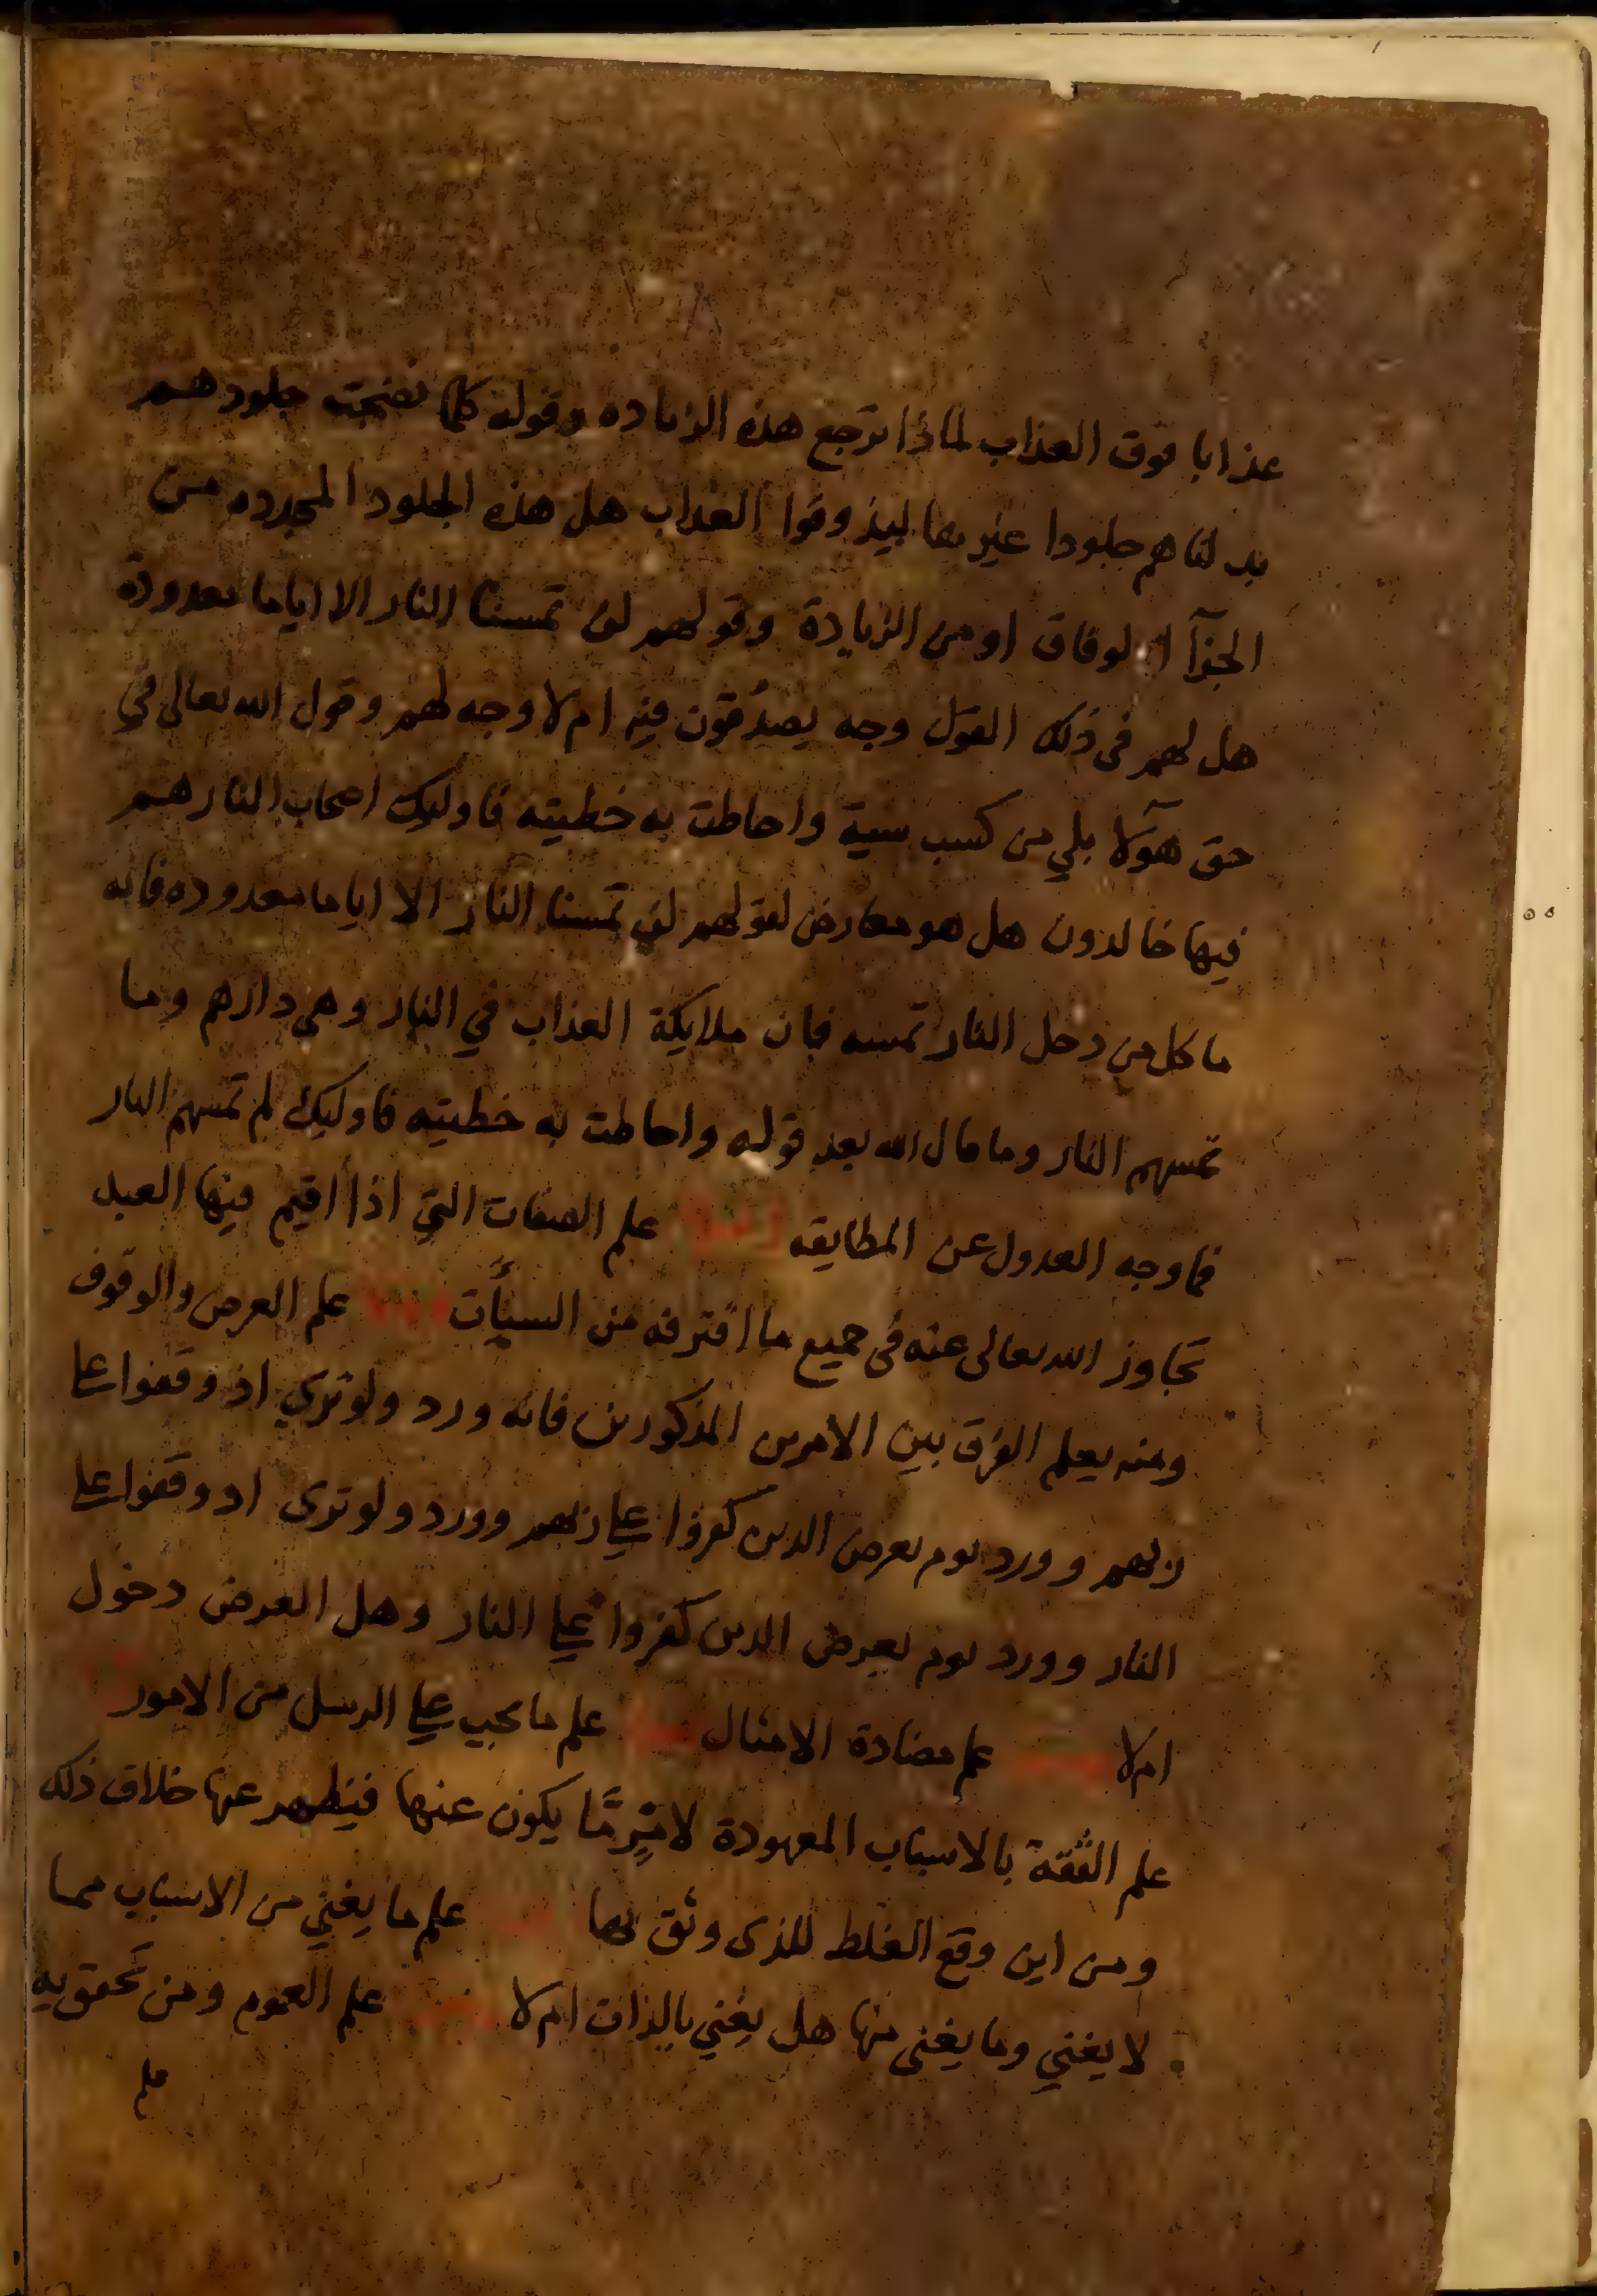 عذابا فوق العذاب لماذا ترجع هذه الزياده وقوله كلما نضجت جلودهم
بدلناهم جلودا غيرها ليذوقوا العذاب هل هذه الجلود المجدده من
الجزآ الوفاق او من الزيادة وقولهم لن تمسنا النار الا اياما معدودة
هل لهم فى ذلك القول وجه يصدقون فيه ام لا وجه لهم وقول الله تعالى في
حق هؤلآ بلي من كسب سية واحاطت به خطيته فاوليك اصحاب النار هم
فيها خالدون هل هو معارض لقولهم لن تمسنا النار الا اياما معدوده فانه
ما كل من دخل النار تمسه فان ملايكة العذاب في النار وهي دارهم وما
تمسهم النار وما قال الله بعد قوله واحاطت به خطيته فاوليك لم تمسهم النار
فما وجه العدول عن المطابقه علم الصفات التي اذا أقيم فيها العبد
تجاوز الله تعالى عنه فى جميع ما اقترفه من السيأت علم العرض والوقوف
ومنه يعلم الفرق بين الامرين المذكورين فانه ورد ولو ترى اذ وقفوا علي
ربهم وورد يوم يعرض الذين كفروا علي ربهم وورد ولو ترى اذ وقفوا علي
النار وورد يوم يعرض الذين كفروا علي النار وهل العرض دخول
ام لا علم مضادة الامثال علم ما يجب علي الرسل من الامور
علم الثقة بالاسباب المعهودة لامرٍ مّا يكون عنها فيظهر عنها خلاف ذلك
ومن اين وقع الغلط للذى وثق بها علم ما يغني من الاسباب مما
لا يغني وما يغنى منها هل يغني بالذات ام لا علم العموم ومن تحقق به
علم